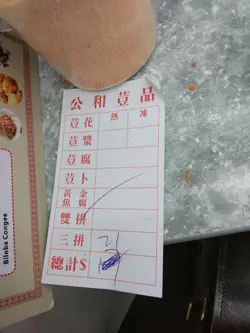 公和荳品
熱 凍
荳花
荳漿
荳腐
荳卜
黃金
魚腐
雙拼
三拼
總計$
Biloba Congee